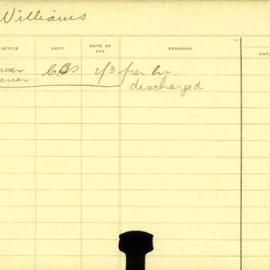 Williams
OFFICE DEPT. DATE OF PAY REMARKS DAT
2/3 per hr.
discharged